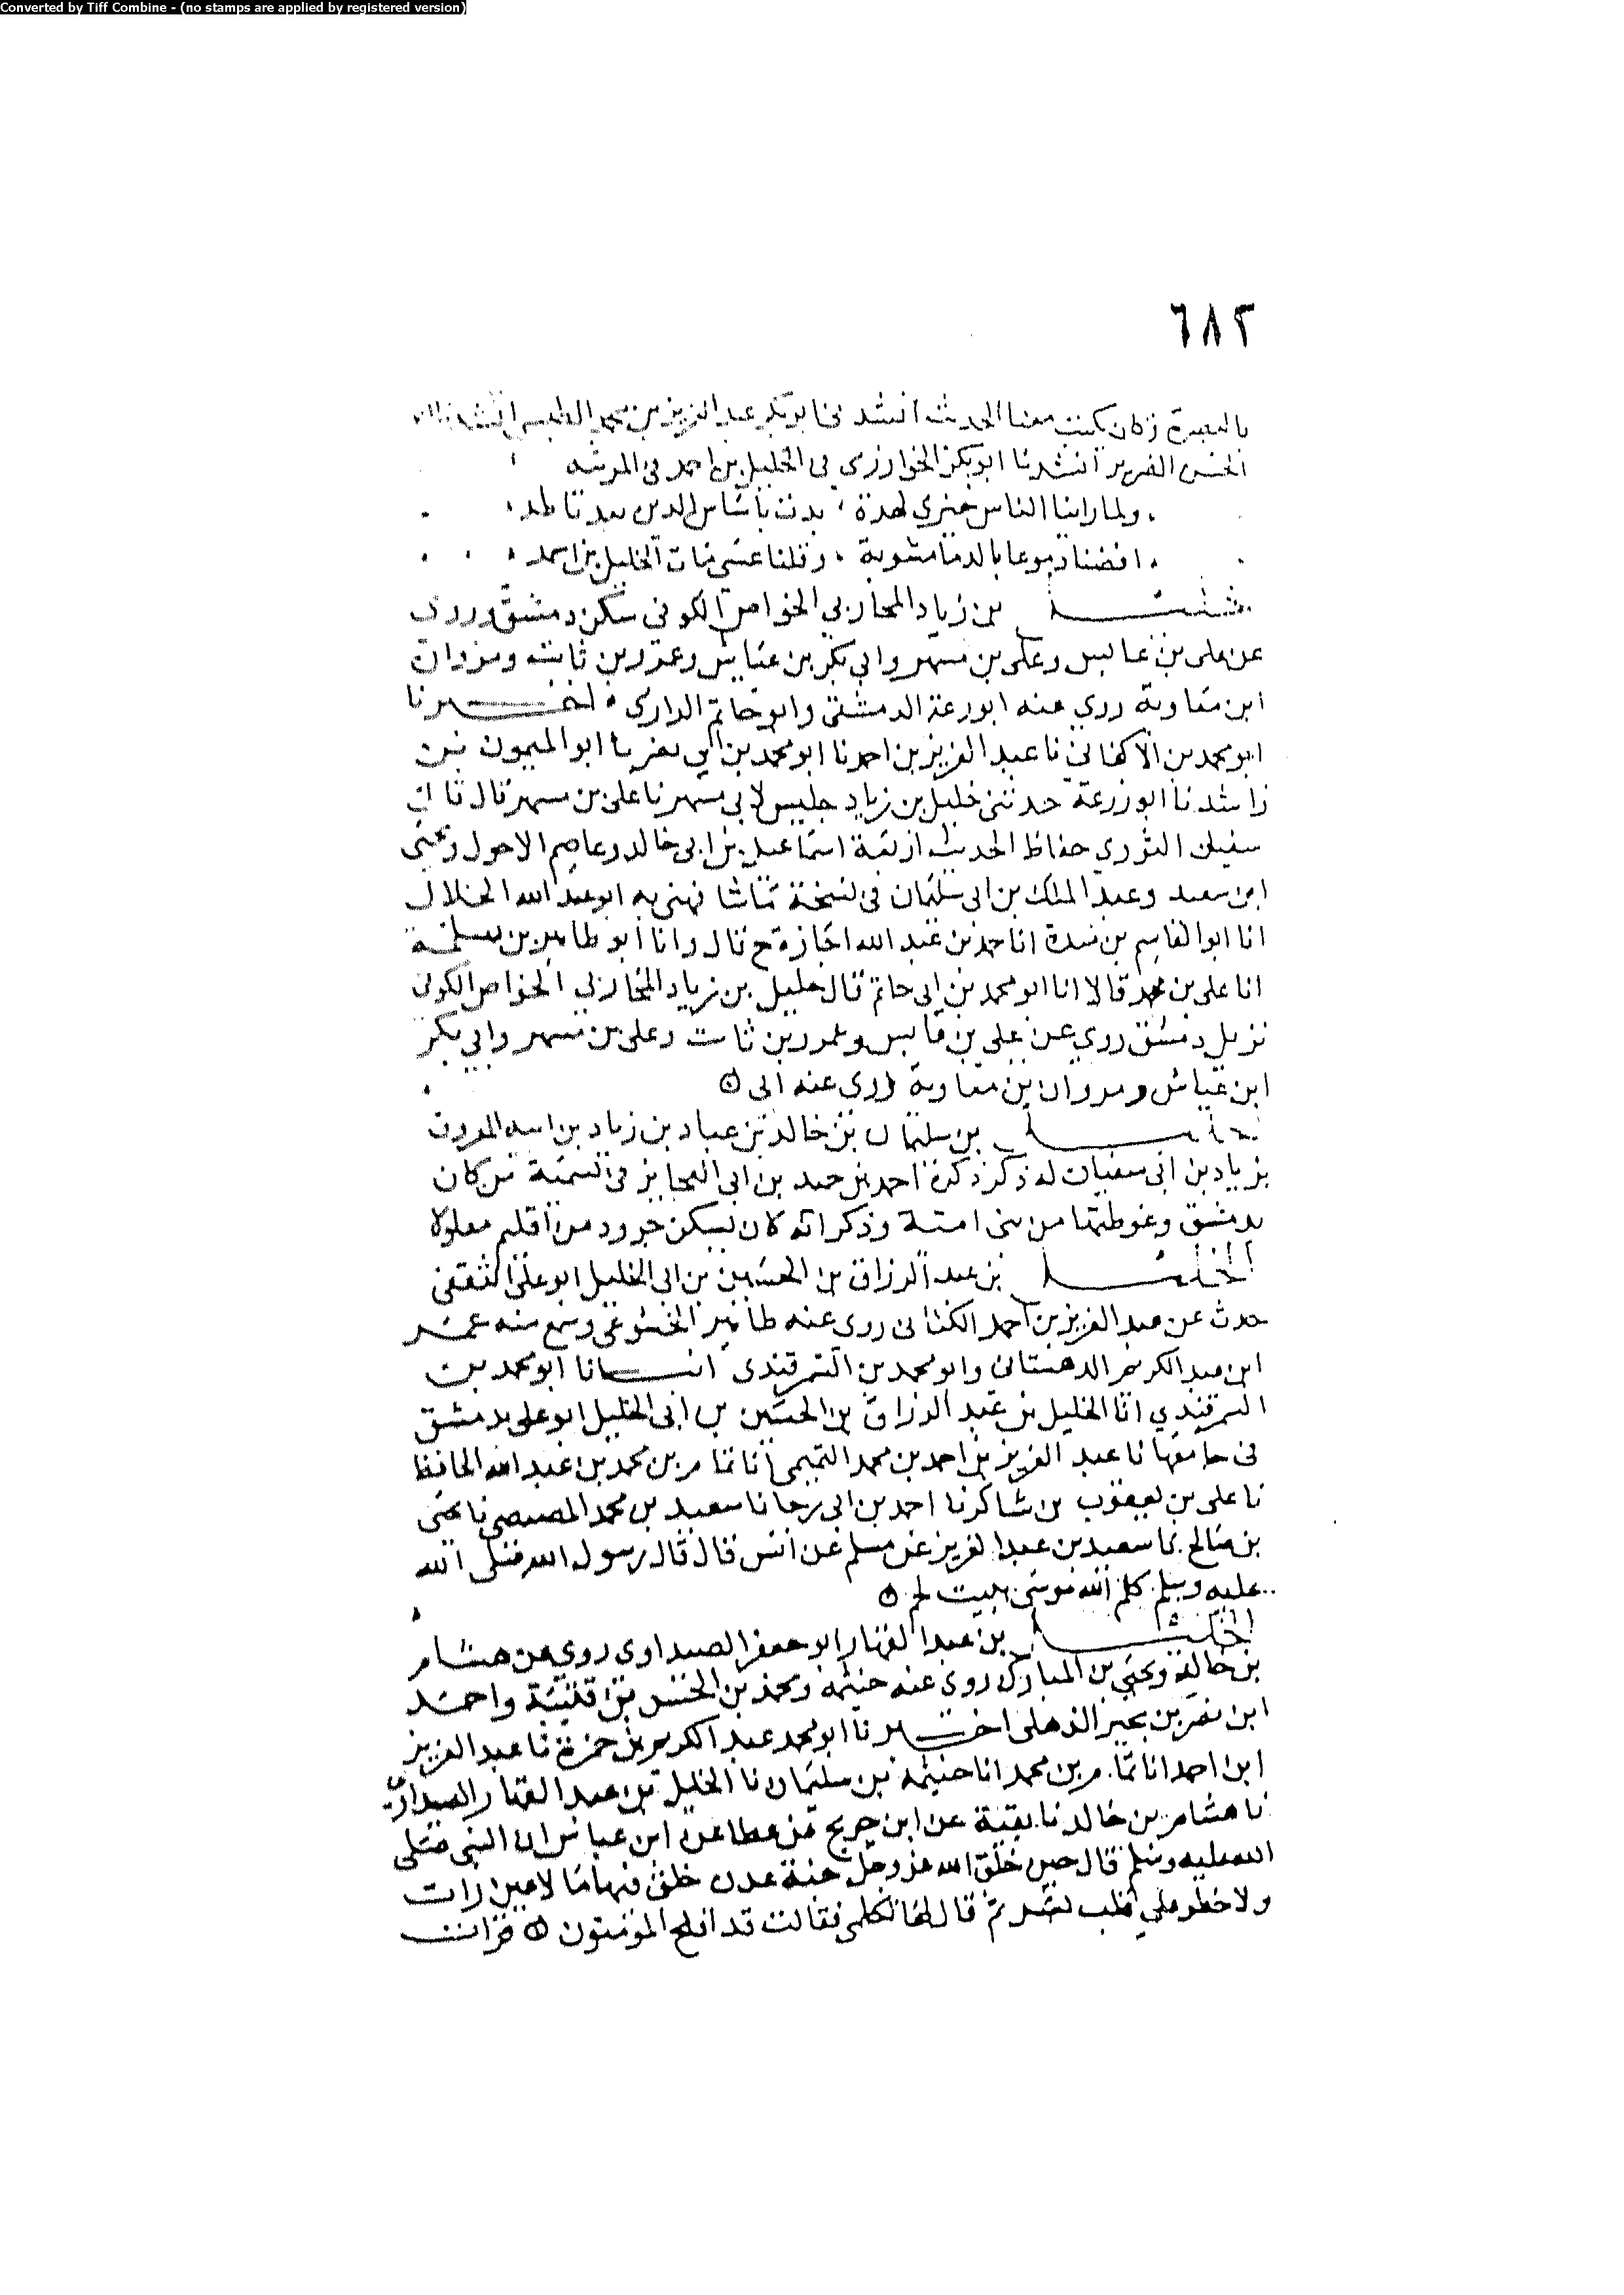 Converted by Tiff Combine - (no stamps are applied by registered version)
٦٨٢
بالبصرة وكان يكتب معنا الحديث انشدني ابو بكر عبد العزيز بن محمد
الضرير انشدنا ابو بكر الخوارزمي في الخليل بن احمد في المرثية
ولما راينا الناس حيرى لهدة بدت باساس الدين بعد تاطد
افضنا دموعا بالدما مشوبة وقلنا عسى مات الخليل بن احمد
خليل بن زياد المحاربي الخواص الكوفي سكن دمشق وروى
عن علي بن عابس وعلي بن مسهر وابي بكر بن عياش وعمرو بن ثابت ومروان
ابن معاوية روى عنه ابو زرعة الدمشقي وابو حاتم الرازي اخبرنا
ابو محمد بن الاكفاني نا عبد العزيز بن احمد نا ابو محمد بن ابي نصر نا ابو الميمون بن
راشد نا ابو زرعة حدثني خليل بن زياد جليس لابي مسهر نا علي بن مسهر قال قال
سفيان الثوري حفاظ الحديث اربعة اسماعيل بن ابي خالد وعاصم الاحول ويحيى
ابن سعيد وعبد الملك بن ابي سليمان في نسخة ابو عبد الله الخلال
انا ابو القاسم بن مندة انا حمد بن عبد الله اجازة ح قال وانا ابو طاهر بن سلمة
انا علي بن محمد قالا انا ابو محمد بن ابي حاتم قال خليل بن زياد المحاربي الخواص الكوفي
نزيل دمشق روى عن علي بن عابس وعمرو بن ثابت وعلي بن مسهر وابي بكر
ابن عياش ومروان بن معاوية روى عنه ابي
بن سليمان بن خالد بن عباد بن زياد بن ابيه المعروف
بزياد بن ابي سفيان له ذكر ذكره احمد بن حميد بن ابي العجايز في تسمية من كان
بدمشق وغوطتها من بني امية وذكر انه كان يسكن جرود من اقليم معلولا
الخليل بن عبد الرزاق بن الحسين بن ابي الخليل ابو علي الثقفي
حدث عن عبد العزيز بن احمد الكتاني روى عنه طاهر الخشوعي وسمع منه عمر
ابن عبد الكريم الدهستاني وابو محمد بن السمرقندي انبانا ابو محمد بن
السمرقندي انا الخليل بن عبد الرزاق بن الحسين بن ابي الخليل ابو علي بدمشق
في جامعها نا عبد العزيز بن احمد بن محمد التميمي انا تمام بن محمد بن عبد الله الحافظ
نا علي بن يعقوب بن شاكر نا احمد بن ابي رجا نا سعيد بن محمد المصيصي نا يحيى
بن صالح نا سعيد بن عبد العزيز عن مسلم عن انس قال قال رسول الله صلى الله
عليه وسلم كلم الله موسى ببيت لحم
الخليل بن عبد القهار ابو جعفر الصيداوي روى عن هشام
بن خالد ويحيى بن المبارك روى عنه خيثمة ومحمد بن الحسن بن قتيبة واحمد
ابن نصر بن بجير الذهلي اخبرنا ابو محمد عبد الكريم بن حمزة نا عبد العزيز
ابن احمد انا تمام بن محمد انا خيثمة بن سليمان نا الخليل بن عبد القهار الصيداوي
نا هشام بن خالد نا بقية عن ابن جريج عن عطا عن ابن عباس ان النبي صلى
الله عليه وسلم قال حين خلق الله عز وجل جنة عدن خلق فيها ما لا عين رات
ولا خطر على قلب بشر ثم قال لها تكلمي فقالت قد افلح المؤمنون قرات